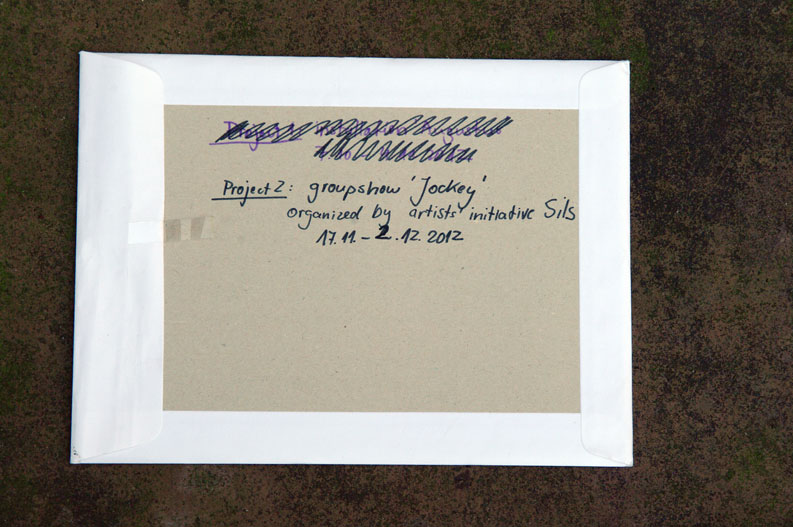 Project 2: groupshow 'Jockey'
organized by artists' initiative Sils
17.11. – 2.12. 2012